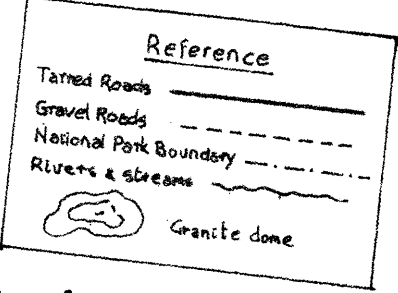 Reference
Tarred Roads
Gravel Roads
National Park Boundary
Rivers & streams
Granite dome